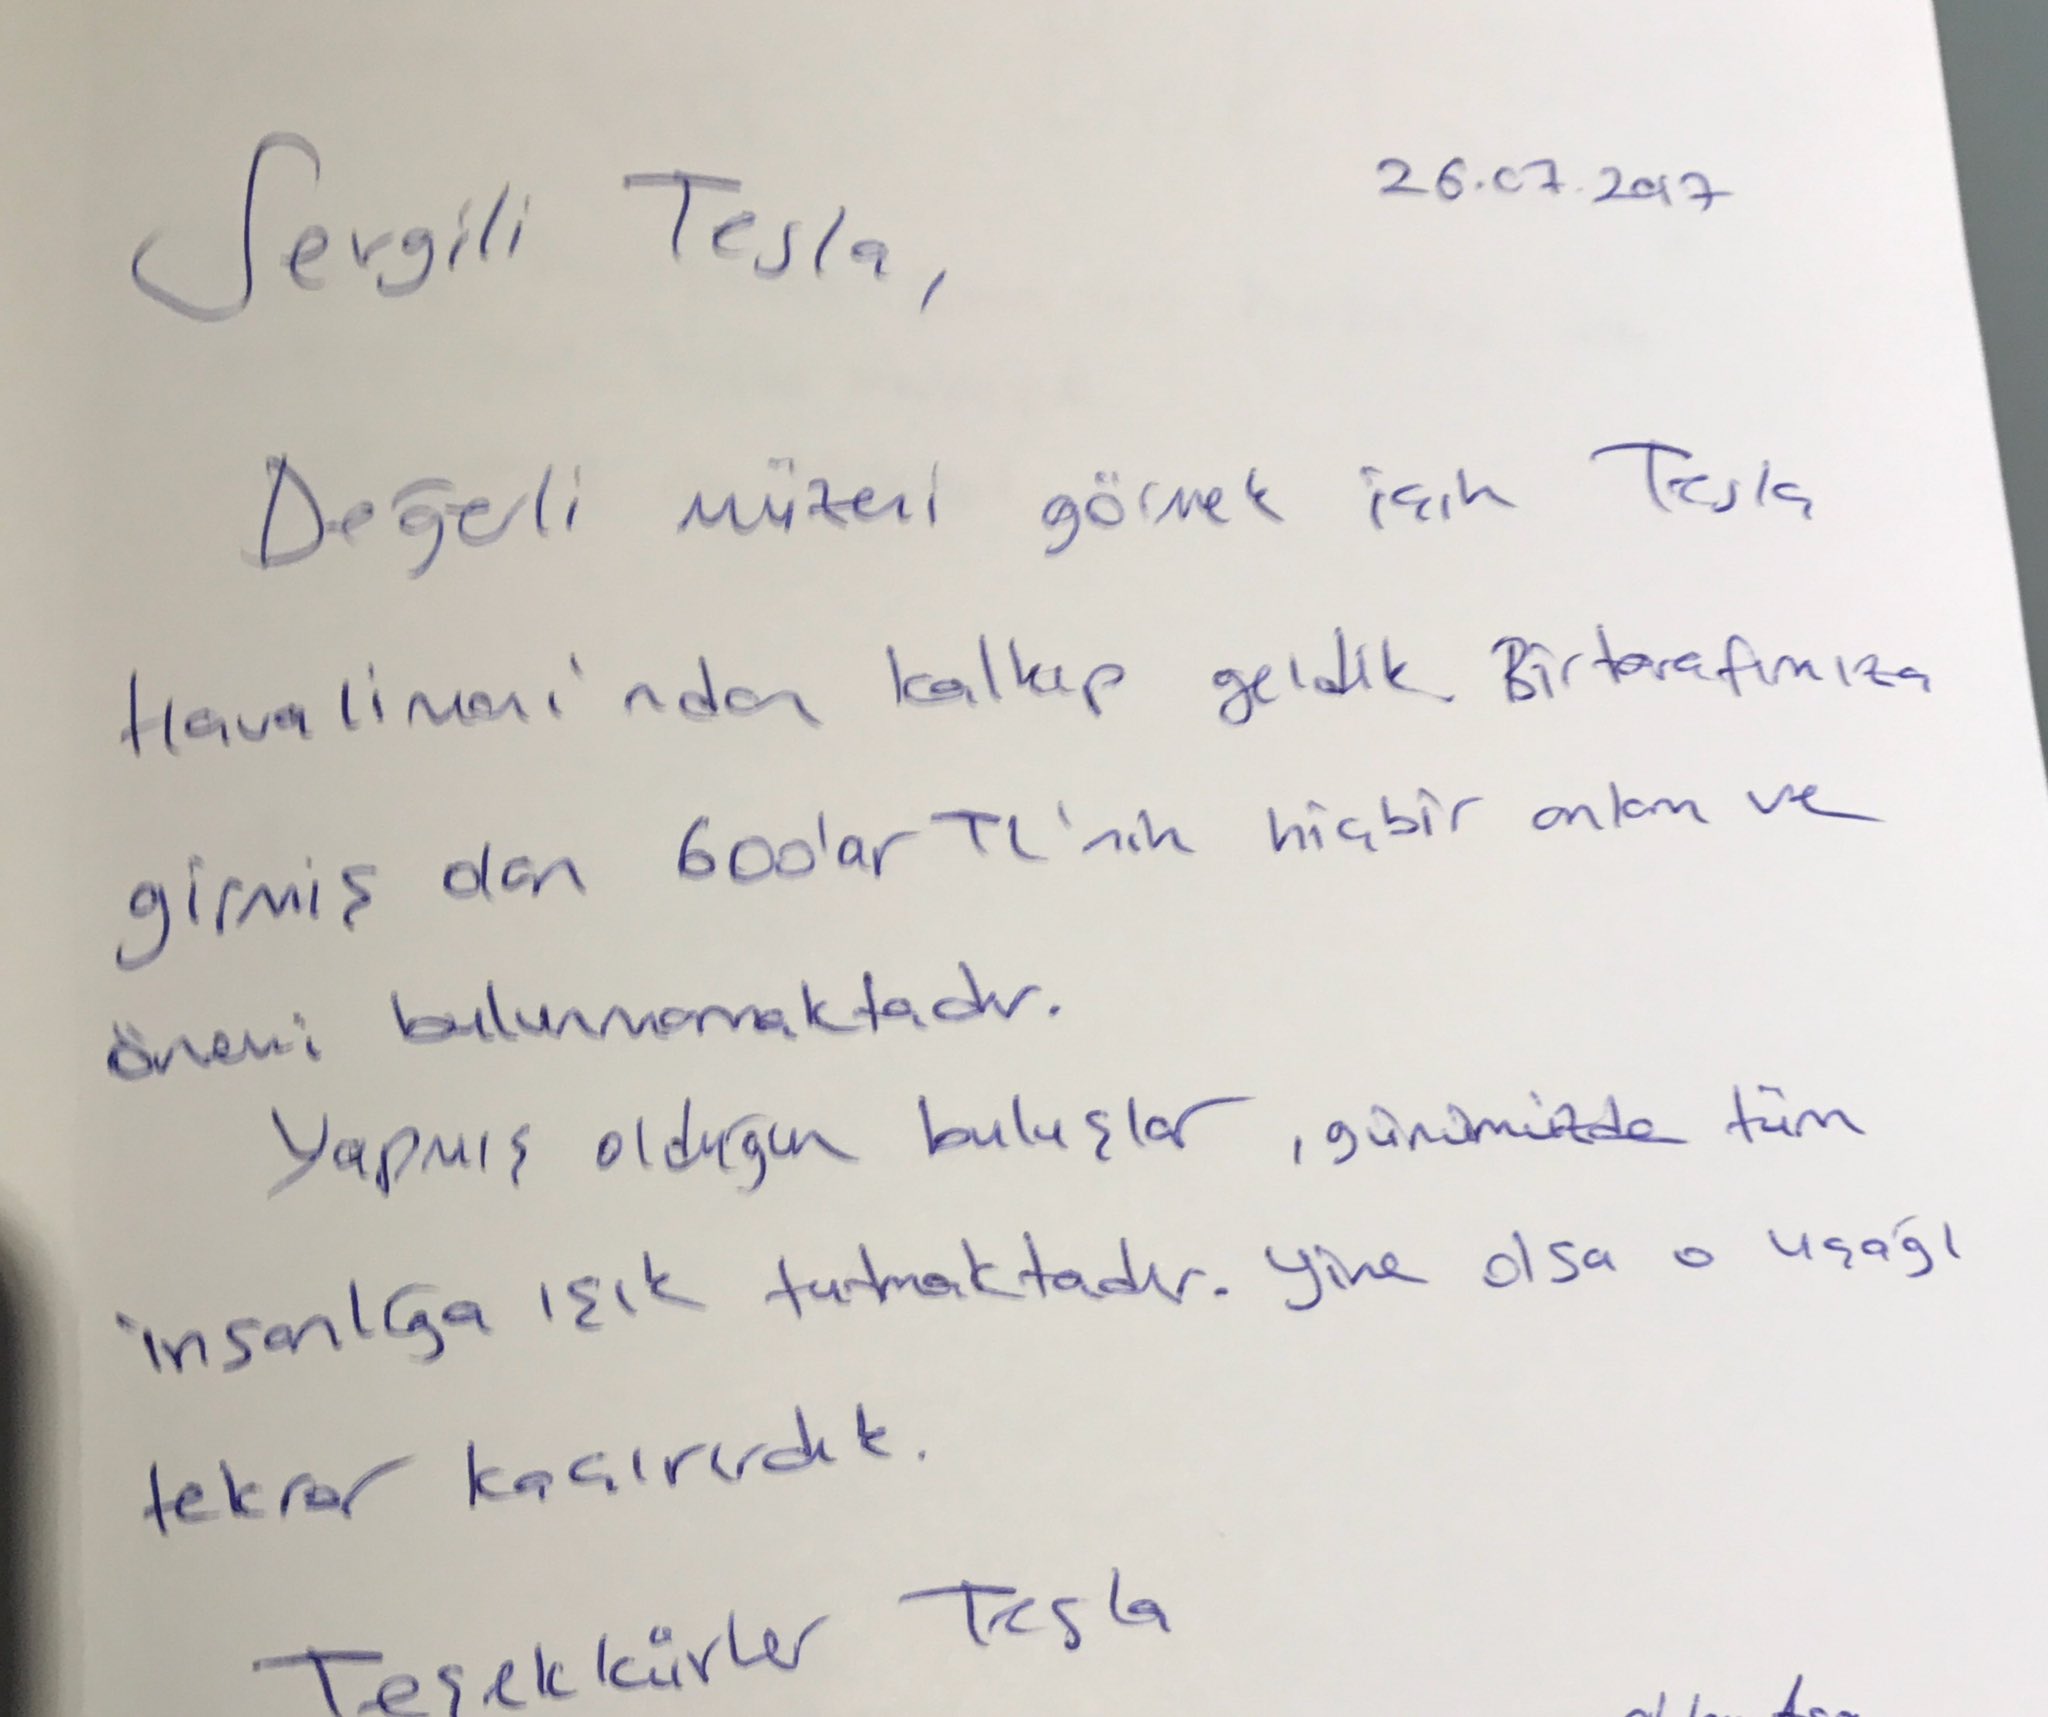 Sevgili Tesla,
26.07.2017
Değerli müzeni görmek için Tesla
Havalimanı'ndan kalkıp geldik Bir tarafımıza
girmiş olan 600'ar TL'nin hiçbir anlam ve
önemi bulunmamaktadır.
Yapmış olduğun buluşlar, günümüzde tüm
insanlığa ışık tutmaktadır. Yine olsa o uçağı
tekrar kaçırırdık.
Teşekkürler Tesla